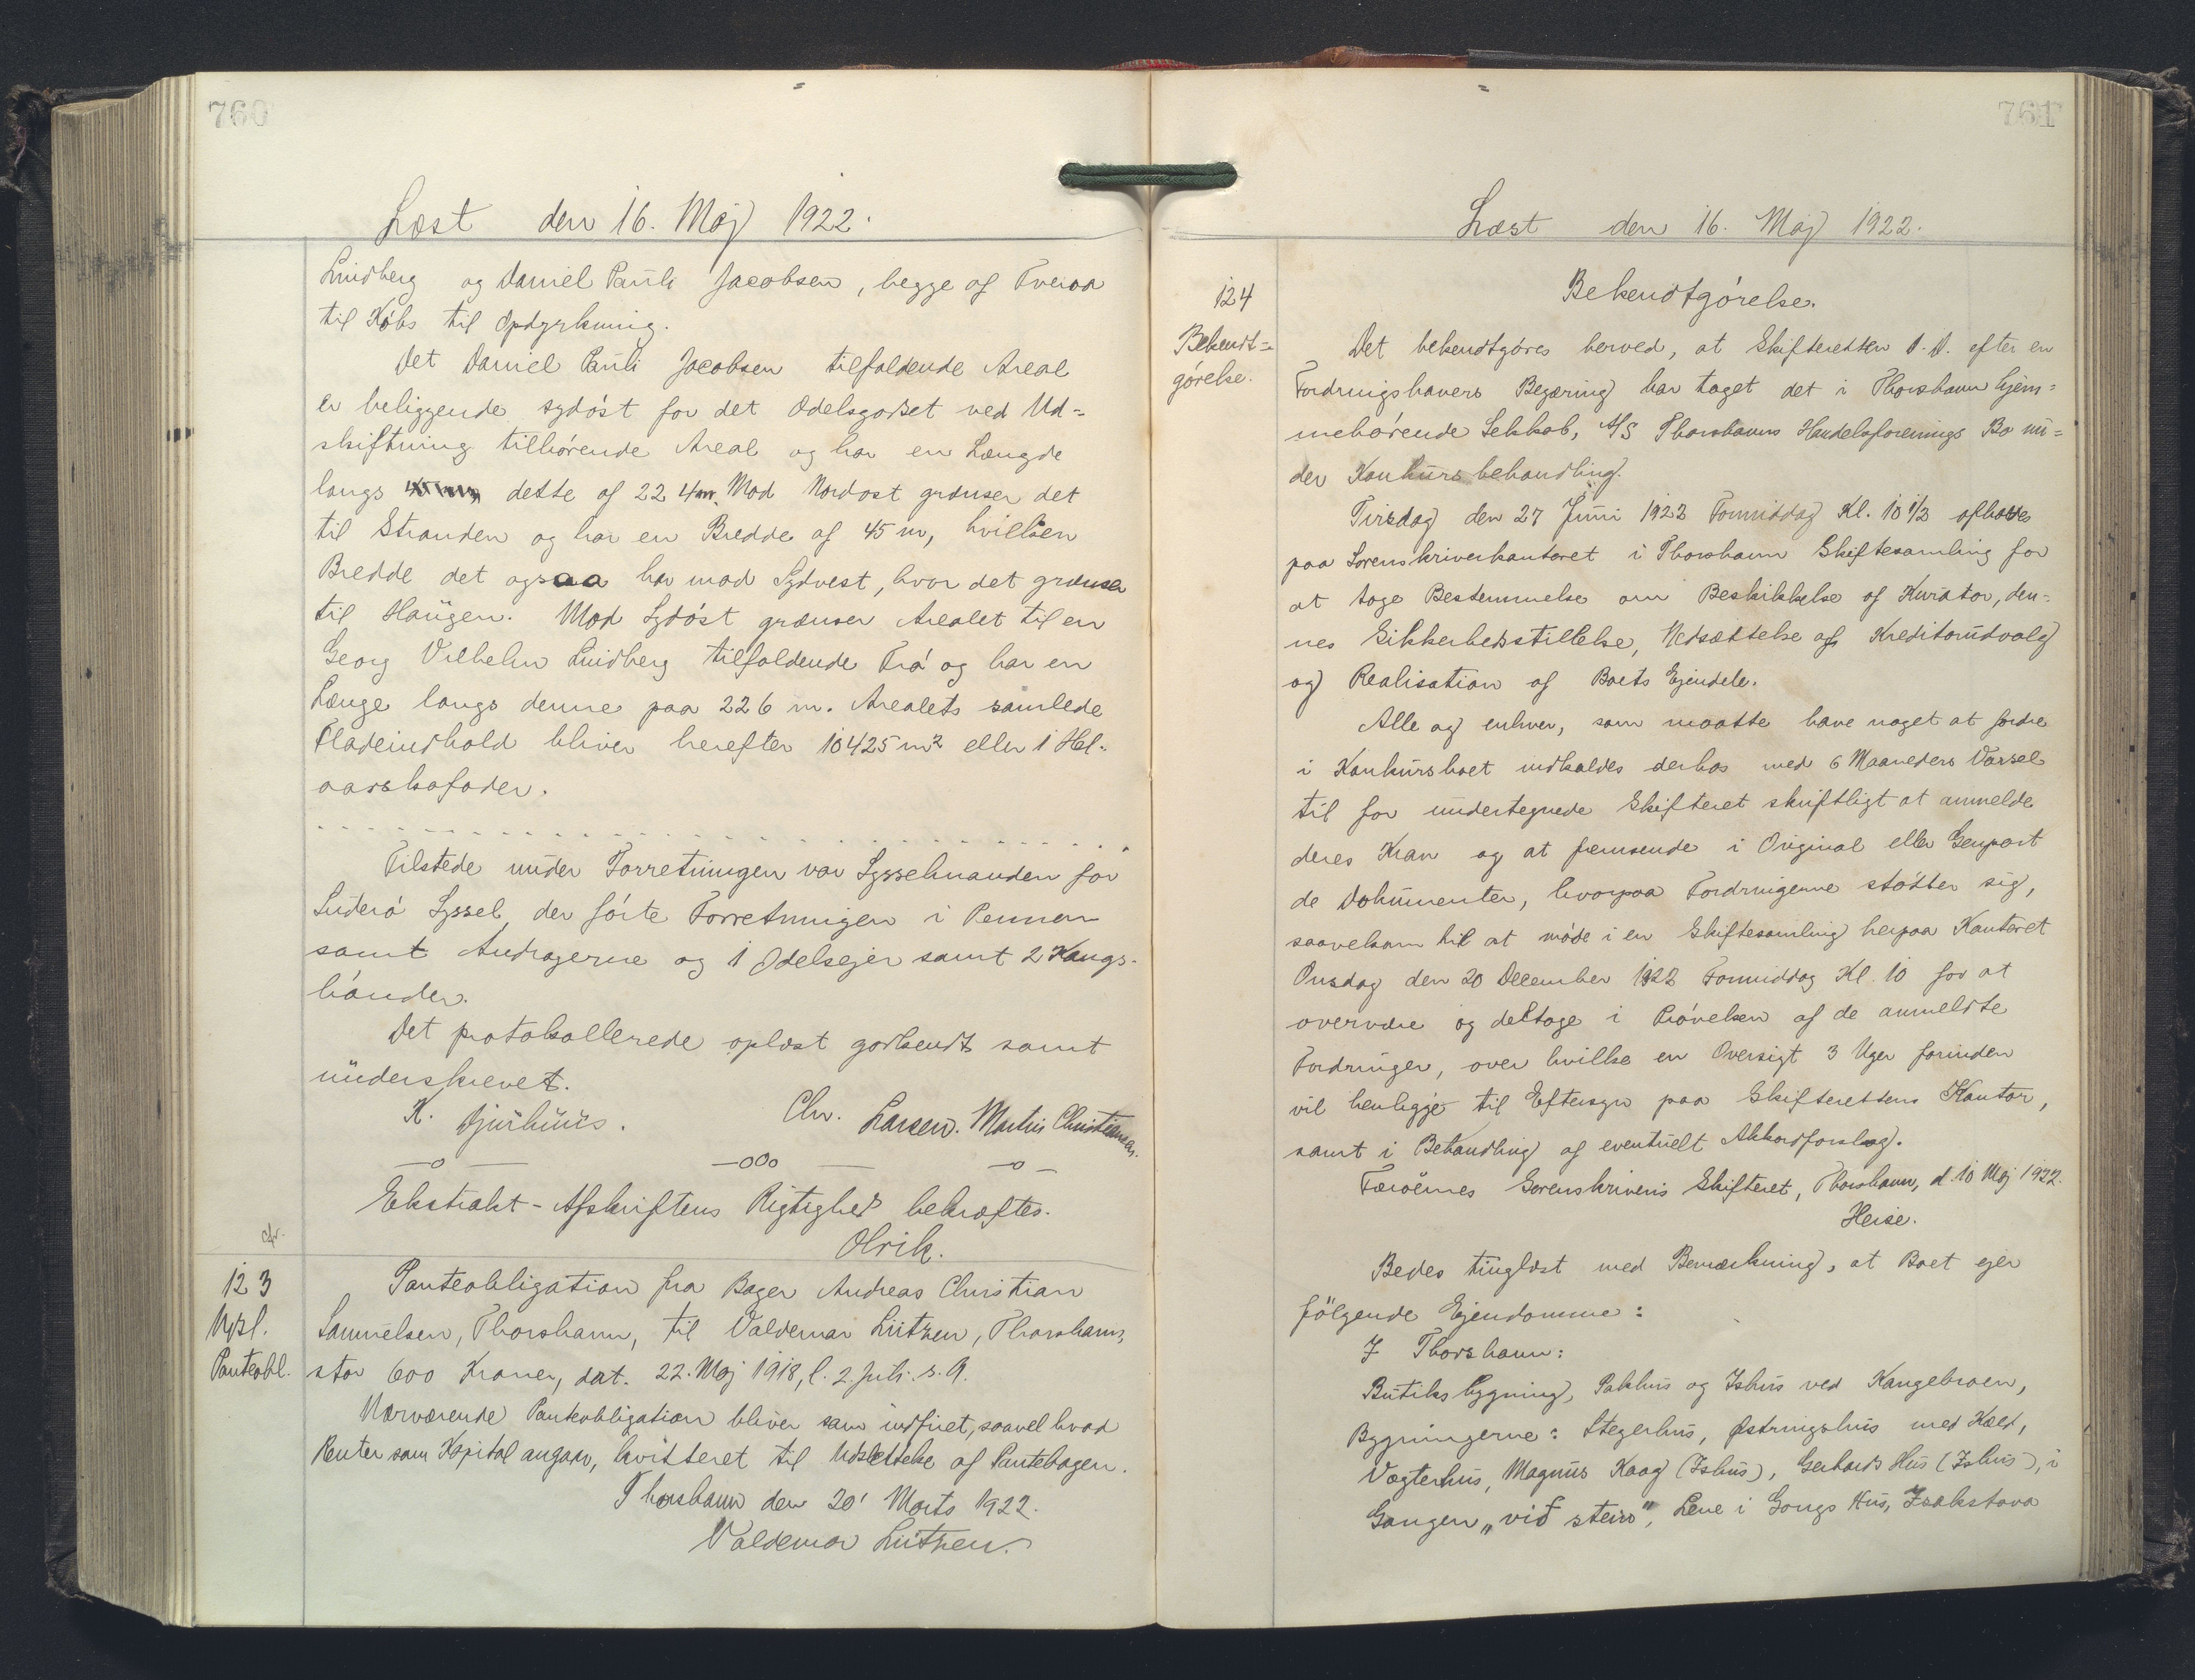 760
Læst den 16. Maj 1922.
Lindberg og Daniel Pauli Jacobsen, begge af Tveraa
til Købs til Opdyrkning.
Det Daniel Pauli Jacobsen tilfaldende Areal
er beliggende sydøst for det Odelsgodset ved Ud=
skiftning tilhørende Areal og har en Længde
langs dette af 224 m. Mod Nordost grænser det
til Stranden og har en Bredde af 45 m, hvilken
Bredde det ogsaa har mod Sydvest, hvor det grænser
til Haugen. Mod Sydøst grænser Arealet til en
Georg Vilhelm Lindberg tilfaldende Trø og har en
Længe langs denne paa 226 m. Arealets samlede
Fladeindhold bliver herefter 10425 m² eller 1 Hel-
aarskofoder.
Tilstede under Forretningen var Sysselmanden for
Suderø Syssel, der førte Forretningen i Pennen
samt Andragerne og 1 Odelsejer samt 2 Kongs-
bønder.
Det protokollerede oplæst godkendt samt
underskrevet.
K. Djurhuus. Chr. Larsen. Martin Christiansen.
—o— —ooo— —o—
Ekstrakt-Afskriftens Rigtighed bekræftes.
Olrik.
123
Udsl.
Panteobl.
Panteobligation fra Bager Andreas Christian
Samuelsen, Thorshavn, til Valdemar Lützen, Thorshavn,
stor 600 Kroner, dat. 22. Maj 1918, l. 2. Juli s. A.
Nærværende Panteobligation bliver som indfriet, saavel hvad
Renter som Kapital angaar, kvitteret til Udslettelse af Pantebogen.
Thorshavn den 20' Marts 1922.
Valdemar Lützen.
761
Læst den 16. Maj 1922.
124
Bekendt=
gørelse.
Bekendtgørelse.
Det bekendtgøres herved, at Skifteretten D.D. efter en
Fordringshavers Begæring har taget det i Thorshavn hjem=
mehørende Selskab, A/S Thorshavns Handelsforenings Bo un=
der Konkursbehandling.
Tirsdag den 27 Juni 1922 Formiddag Kl. 10 1/2 afholdes
paa Sorenskriverkontoret i Thorshavn Skiftesamling for
at tage Bestemmelse om Beskikkelse af Kurator, den=
nes Sikkerhedsstillelse, Nedsættelse af Kreditorudvalg
og Realisation af Boets Ejendele.
Alle og enhver, som maatte have noget at fordre
i Konkursboet indkaldes derhos med 6 Maaneders Varsel
til for undertegnede Skifteret skriftligt at anmelde
deres Krav og at fremsende i Original eller Genpart
de Dokumenter, hvorpaa Fordringerne støtter sig,
saavelsom til at møde i en Skiftesamling herpaa Kontoret
Onsdag den 20 December 1922 Formiddag Kl. 10 for at
overvære og deltage i Prøvelsen af de anmeldte
Fordringer, over hvilke en Oversigt 3 Uger forinden
vil henligge til Eftersyn paa Skifterettens Kontor,
samt i Behandling af eventuelt Akkordforslag.
Færøernes Sorenskriveris Skifteret, Thorshavn, d. 10 Maj 1922.
Heise.
Bedes tinglæst med Bemærkning, at Boet ejer
følgende Ejendomme:
I Thorshavn:
Butiksbygning, Pakhus og Ishus ved Kongebroen,
Bygningerne: Stegerhus, Østringshus med Kæld,
Vægterhus, Magnus Kaag (Ishus), Gerhards Hus (Ishus), i
Gangen „við stein", Lene i Gongs Hus, Isakstova